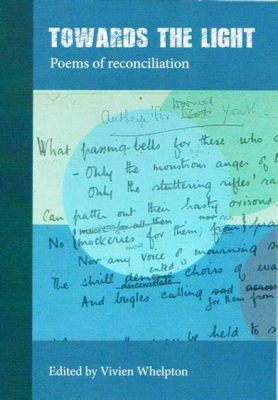 TOWARDS THE LIGHT
Poems of reconciliation
Doomed
Anthem for Youth
What passing-bells for these who
- Only the monstrous anger of
Only the stuttering rifles' ra
Can patter out their hasty orisons
No mockeries for them;
Nor any voice of mourning s
The shrill choirs of wa
And bugles calling
for them from
be held to s
Edited by Vivien Whelpton